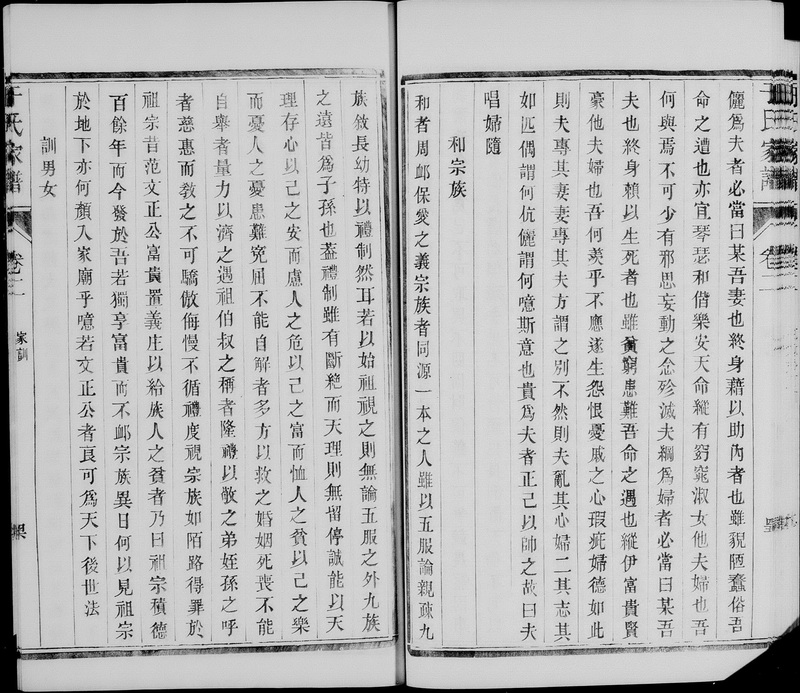 儷為夫者必當曰某吾妻也終身藉以助內者也雖貌陋蠢俗吾
命之遭也亦宜琴瑟和偕樂安天命縱有窈窕淑女他夫婦也吾
何與焉不可少有邪思妄動之念殄滅夫綱為婦者必當曰某吾
夫也終身賴以生死者也雖貧窮患難吾命之遇也縱伊富貴賢
豪他夫婦也吾何羨乎不應遂生怨恨憂戚之心瑕疵婦德如此
則夫專其妻妻專其夫方謂之別不然則夫亂其心婦二其志其
如匹偶謂何伉儷謂何噫斯意也貴為夫者正己以帥之故曰夫
唱婦隨
和宗族
和者周卹保愛之義宗族者同源一本之人雖以五服論親疎九
族敘長幼特以禮制然耳若以始祖視之則無論五服之外九族
之遠皆為子孫也蓋禮制雖有斷絕而天理則無留停誠能以天
理存心以己之安而慮人之危以己之富而恤人之貧以己之樂
而憂人之憂患難冤屈不能自解者多方以救之婚姻死喪不能
自舉者量力以濟之遇祖伯叔之稱者隆禮以敬之弟姪孫之呼
者慈惠而教之不可驕傲侮慢不循禮度視宗族如陌路得罪於
祖宗昔范文正公富貴置義庄以給族人之貧者乃曰祖宗積德
百餘年而今發於吾若獨享富貴而不卹宗族異日何以見祖宗
於地下亦何顏入家廟乎噫若文正公者良可為天下後世法
訓男女
于氏家譜
卷二
家訓